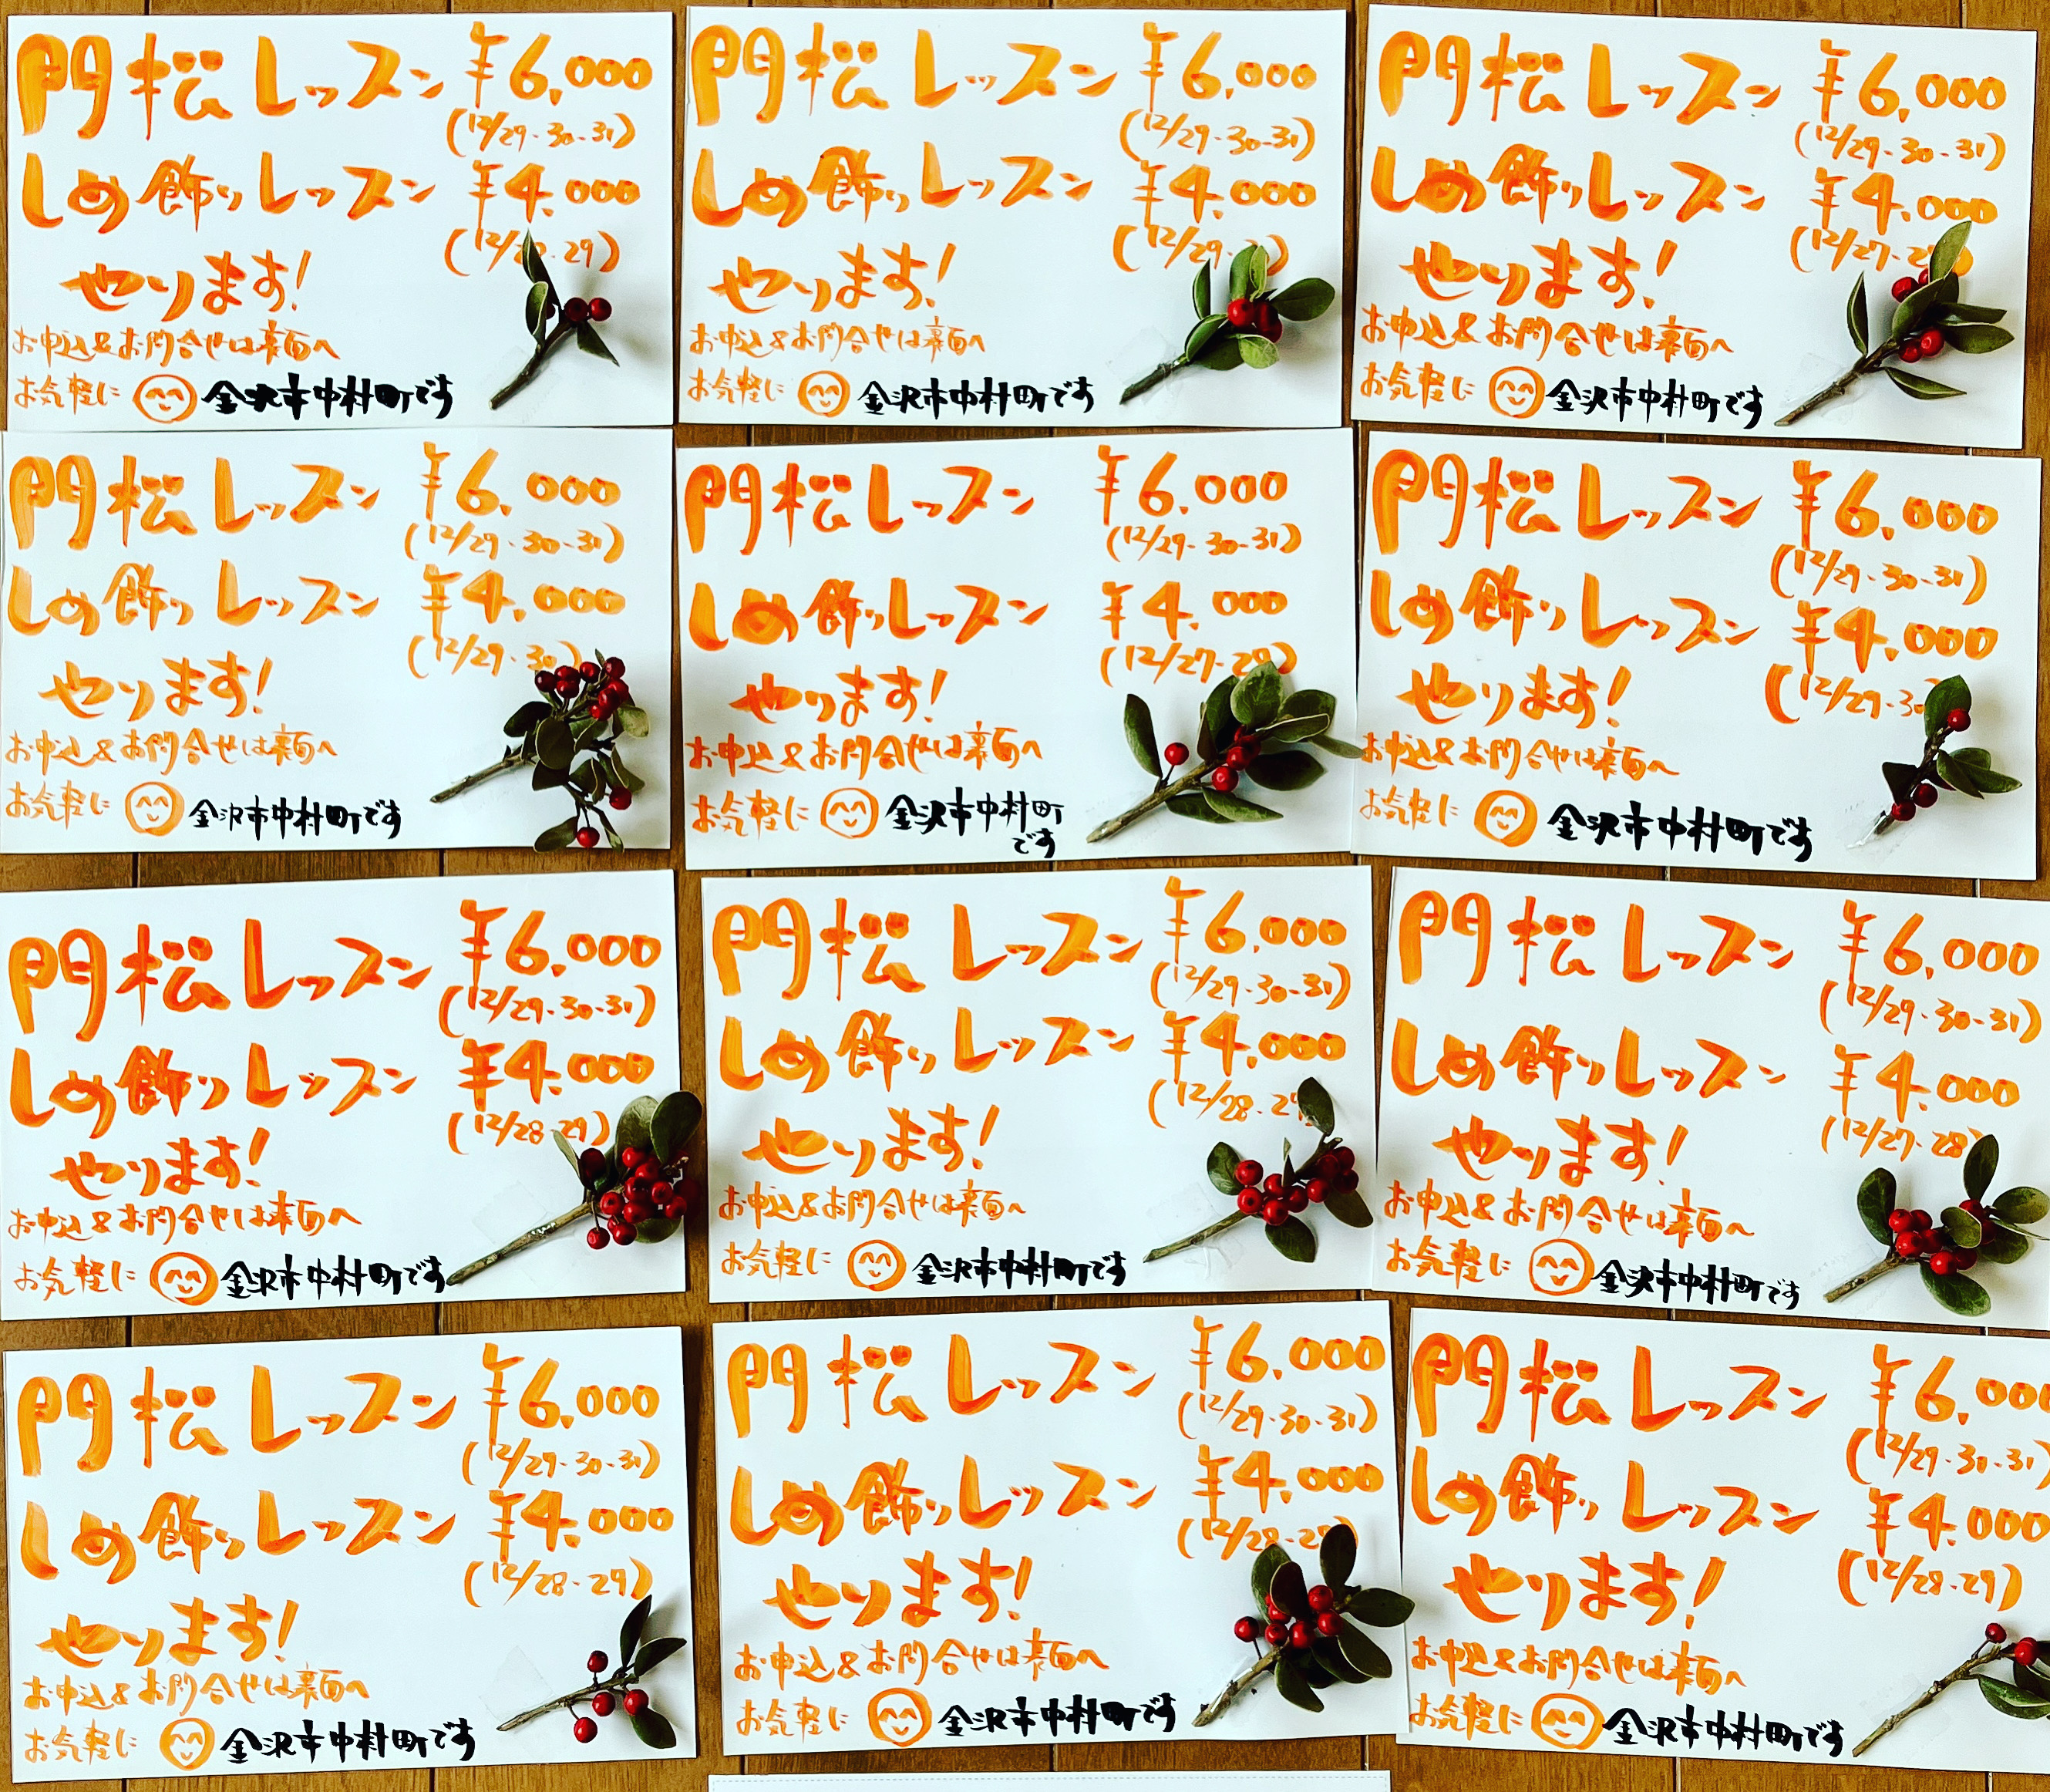 門松レッスン ¥6,000
(12/29-30-31)
しめ飾りレッスン ¥4,000
29)
やります!
お申込&お問合せは裏面へ
お気軽に 金沢市中村町です
門松レッスン ¥6,000
(12/29-30-31)
しめ飾りレッスン ¥4,000
(12/29-
やります!
お申込&お問合せは裏面へ
お気軽に 金沢市中村町です
門松レッスン ¥6,000
(12/29-30-31)
しめ飾りレッスン ¥4,000
(12/27-
やります!
お申込&お問合せは裏面へ
お気軽に 金沢市中村町です
門松レッスン ¥6,000
(12/29-30-31)
しめ飾りレッスン ¥4,000
(12/29-30)
やります!
お申込&お問合せは裏面へ
お気軽に 金沢市中村町です
門松レッスン ¥6,000
(12/29-30-31)
しめ飾りレッスン ¥4,000
(12/27-28)
やります!
お申込&お問合せは裏面へ
お気軽に 金沢市中村町
です
門松レッスン ¥6,000
(12/29-30-31)
しめ飾りレッスン ¥4,000
(12/29-30
やります!
お申込&お問合せは裏面へ
お気軽に 金沢市中村町です
門松レッスン ¥6,000
(12/29-30-31)
しめ飾りレッスン ¥4,000
(12/28-29)
やります!
お申込&お問合せは裏面へ
お気軽に 金沢市中村町です
門松レッスン ¥6,000
(12/29-30-31)
しめ飾りレッスン ¥4,000
(12/28-29
やります!
お申込&お問合せは裏面へ
お気軽に 金沢市中村町です
門松レッスン ¥6,000
(12/29-30-31)
しめ飾りレッスン ¥4,000
(12/27-28)
やります!
お申込&お問合せは裏面へ
お気軽に 金沢市中村町です
門松レッスン ¥6,000
(12/29-30-31)
しめ飾りレッスン ¥4,000
(12/28-29)
やります!
お申込&お問合せは裏面へ
お気軽に 金沢市中村町です
門松レッスン ¥6,000
(12/29-30-31)
しめ飾りレッスン ¥4,000
(12/28-2
やります!
お申込&お問合せは裏面へ
お気軽に 金沢市中村町です
門松レッスン ¥6,000
(12/29-30-31)
しめ飾りレッスン ¥4,000
(12/28-29)
やります!
お申込&お問合せは裏面へ
お気軽に 金沢市中村町です